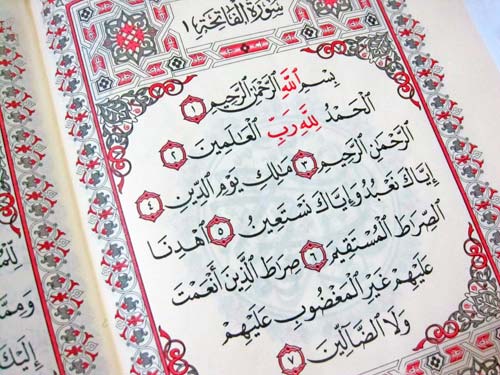 سُورَةُ الْفَاتِحَةِ ١
بِسْمِ اللَّهِ الرَّحْمَٰنِ الرَّحِيمِ ١
الْحَمْدُ لِلَّهِ رَبِّ الْعَالَمِينَ ٢
الرَّحْمَٰنِ الرَّحِيمِ ٣ مَلِكِ يَوْمِ الدِّينِ ٤
إِيَّاكَ نَعْبُدُ وَإِيَّاكَ نَسْتَعِينُ ٥ اهْدِنَا
الصِّرَاطَ الْمُسْتَقِيمَ ٦ صِرَاطَ الَّذِينَ أَنْعَمْتَ
عَلَيْهِمْ غَيْرِ الْمَغْضُوبِ عَلَيْهِمْ
وَلَا الضَّالِّينَ ٧